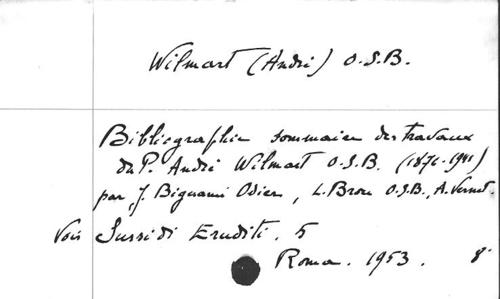 Wilmart (André) O.S.B.
Bibliographie sommaire des travaux
du P. André Wilmart O.S.B. (1876-1941)
par J. Bignami Odier, L. Brou O.S.B., A. Vernet.
Voir Sussidi Eruditi. 5
Roma. 1953. 8°